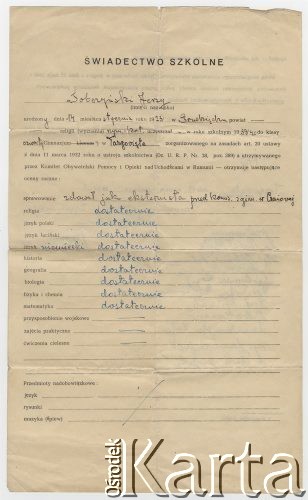 ŚWIADECTWO SZKOLNE
Jerzy
(imię i nazwisko)
urodzony dnia 14 miesiąca stycznia roku 1923 w powiat
religji (wyznania) rzym. kat. uczęszczał w roku szkolnym 1939/40 do klasy
Gimnazjum w Targoviste zorganizowanego na zasadach art. 20 ustawy
z dnia 11 marca 1932 roku o ustroju szkolnictwa (Dz. U. R. P. Nr. 38, poz. 389) a utrzymywanego
przez Komitet Obywatelski Pomocy i Opieki nad Uchodźcami w Rumunii — otrzymuje następujące
oceny roczne:
sprawowanie zdawał jak eksternista przed kom. egzam. w
religia dostatecznie
język polski dostatecznie
język łaciński dostatecznie
język niemiecki dostatecznie
historia dostatecznie
geografia dostatecznie
biologia dostatecznie
fizyka i chemia dostatecznie
matematyka dostatecznie
przysposobienie wojskowe
zajęcia praktyczne —
ćwiczenia cielesne —
Przedmioty nadobowiązkowe:
język
rysunki
muzyka (śpiew)
ośrodek Karta